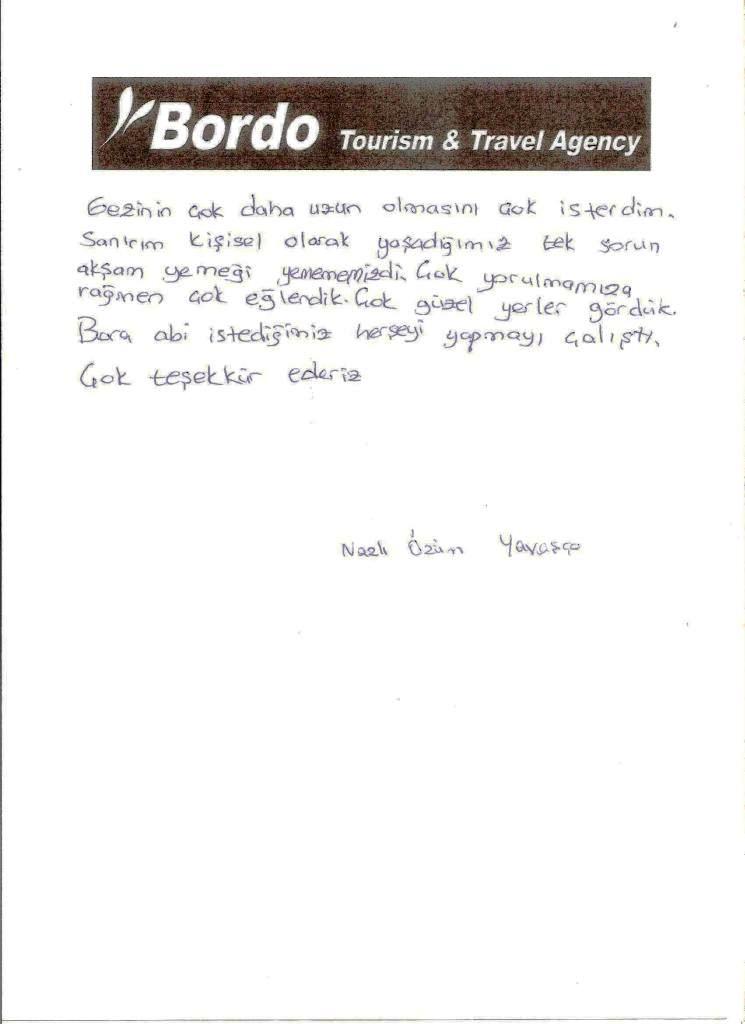 Bordo Tourism & Travel Agency
Gezinin çok daha uzun olmasını çok isterdim.
Sanırım kişisel olarak yaşadığımız tek sorun
akşam yemeği yemememizdi. Çok yorulmamıza
rağmen çok eğlendik. Çok güzel yerler gördük.
Bora abi istediğimiz herşeyi yapmayı çalıştı.
Çok teşekkür ederiz
Nazlı Özüm Yavaşça